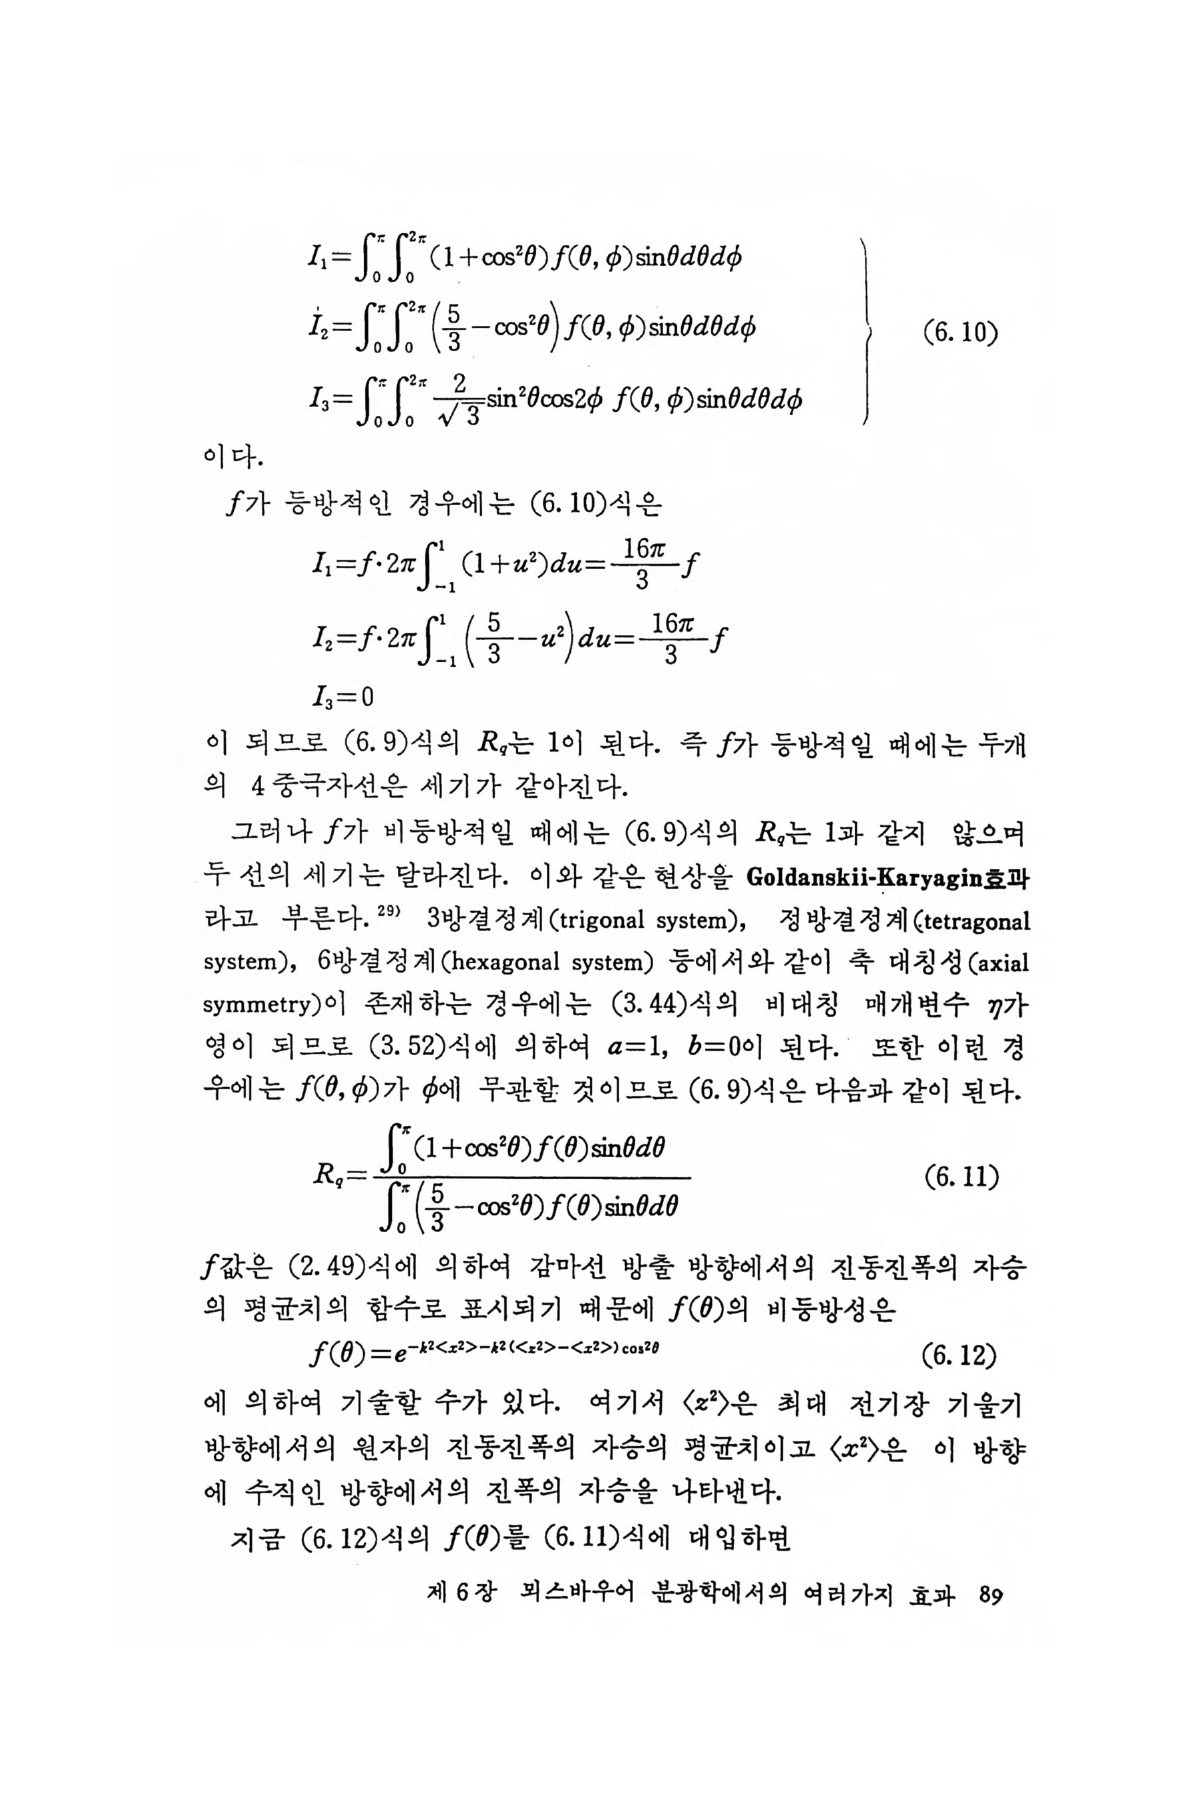 I₁=∫₀^π∫₀^2π(1+cos²θ)f(θ, ϕ)sinθdθdϕ
I₂=∫₀^π∫₀^2π(5/3−cos²θ)f(θ, ϕ)sinθdθdϕ (6. 10)
I₃=∫₀^π∫₀^2π 2/√3 sin²θcos2ϕ f(θ, ϕ)sinθdθdϕ
이다.
f가 등방적인 경우에는 (6. 10)식은
I₁=f·2π∫₋₁^1 (1+u²)du=16π/3 f
I₂=f·2π∫₋₁^1 (5/3−u²)du=16π/3 f
I₃=0
이 되므로 (6. 9)식의 R_q는 1이 된다. 즉 f가 등방적일 때에는 두개
의 4중극자선은 세기가 같아진다.
그러나 f가 비등방적일 때에는 (6. 9)식의 R_q는 1과 같지 않으며
두 선의 세기는 달라진다. 이와 같은 현상을 Goldanskii-Karyagin효과
라고 부른다.²⁹⁾ 3방결정계(trigonal system), 정방결정계(tetragonal
system), 6방결정계(hexagonal system) 등에서와 같이 축 대칭성(axial
symmetry)이 존재하는 경우에는 (3. 44)식의 비대칭 매개변수 η가
영이 되므로 (3. 52)식에 의하여 a=1, b=0이 된다. 또한 이런 경
우에는 f(θ, ϕ)가 ϕ에 무관할 것이므로 (6. 9)식은 다음과 같이 된다.
R_q=∫₀^π(1+cos²θ)f(θ)sinθdθ / ∫₀^π(5/3−cos²θ)f(θ)sinθdθ (6. 11)
f값은 (2. 49)식에 의하여 감마선 방출 방향에서의 진동진폭의 자승
의 평균치의 함수로 표시되기 때문에 f(θ)의 비등방성은
f(θ)=e^−k²<x²>−k²(<z²>−<x²>)cos²θ (6. 12)
에 의하여 기술할 수가 있다. 여기서 〈z²〉은 최대 전기장 기울기
방향에서의 원자의 진동진폭의 자승의 평균치이고 〈x²〉은 이 방향
에 수직인 방향에서의 진폭의 자승을 나타낸다.
지금 (6. 12)식의 f(θ)를 (6. 11)식에 대입하면
제 6 장 뫼스바우어 분광학에서의 여러가지 효과 89